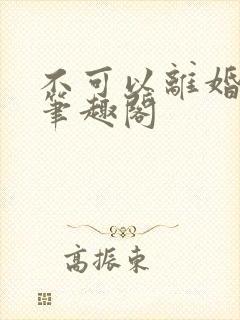 不可以離婚
筆趣閣
高振東